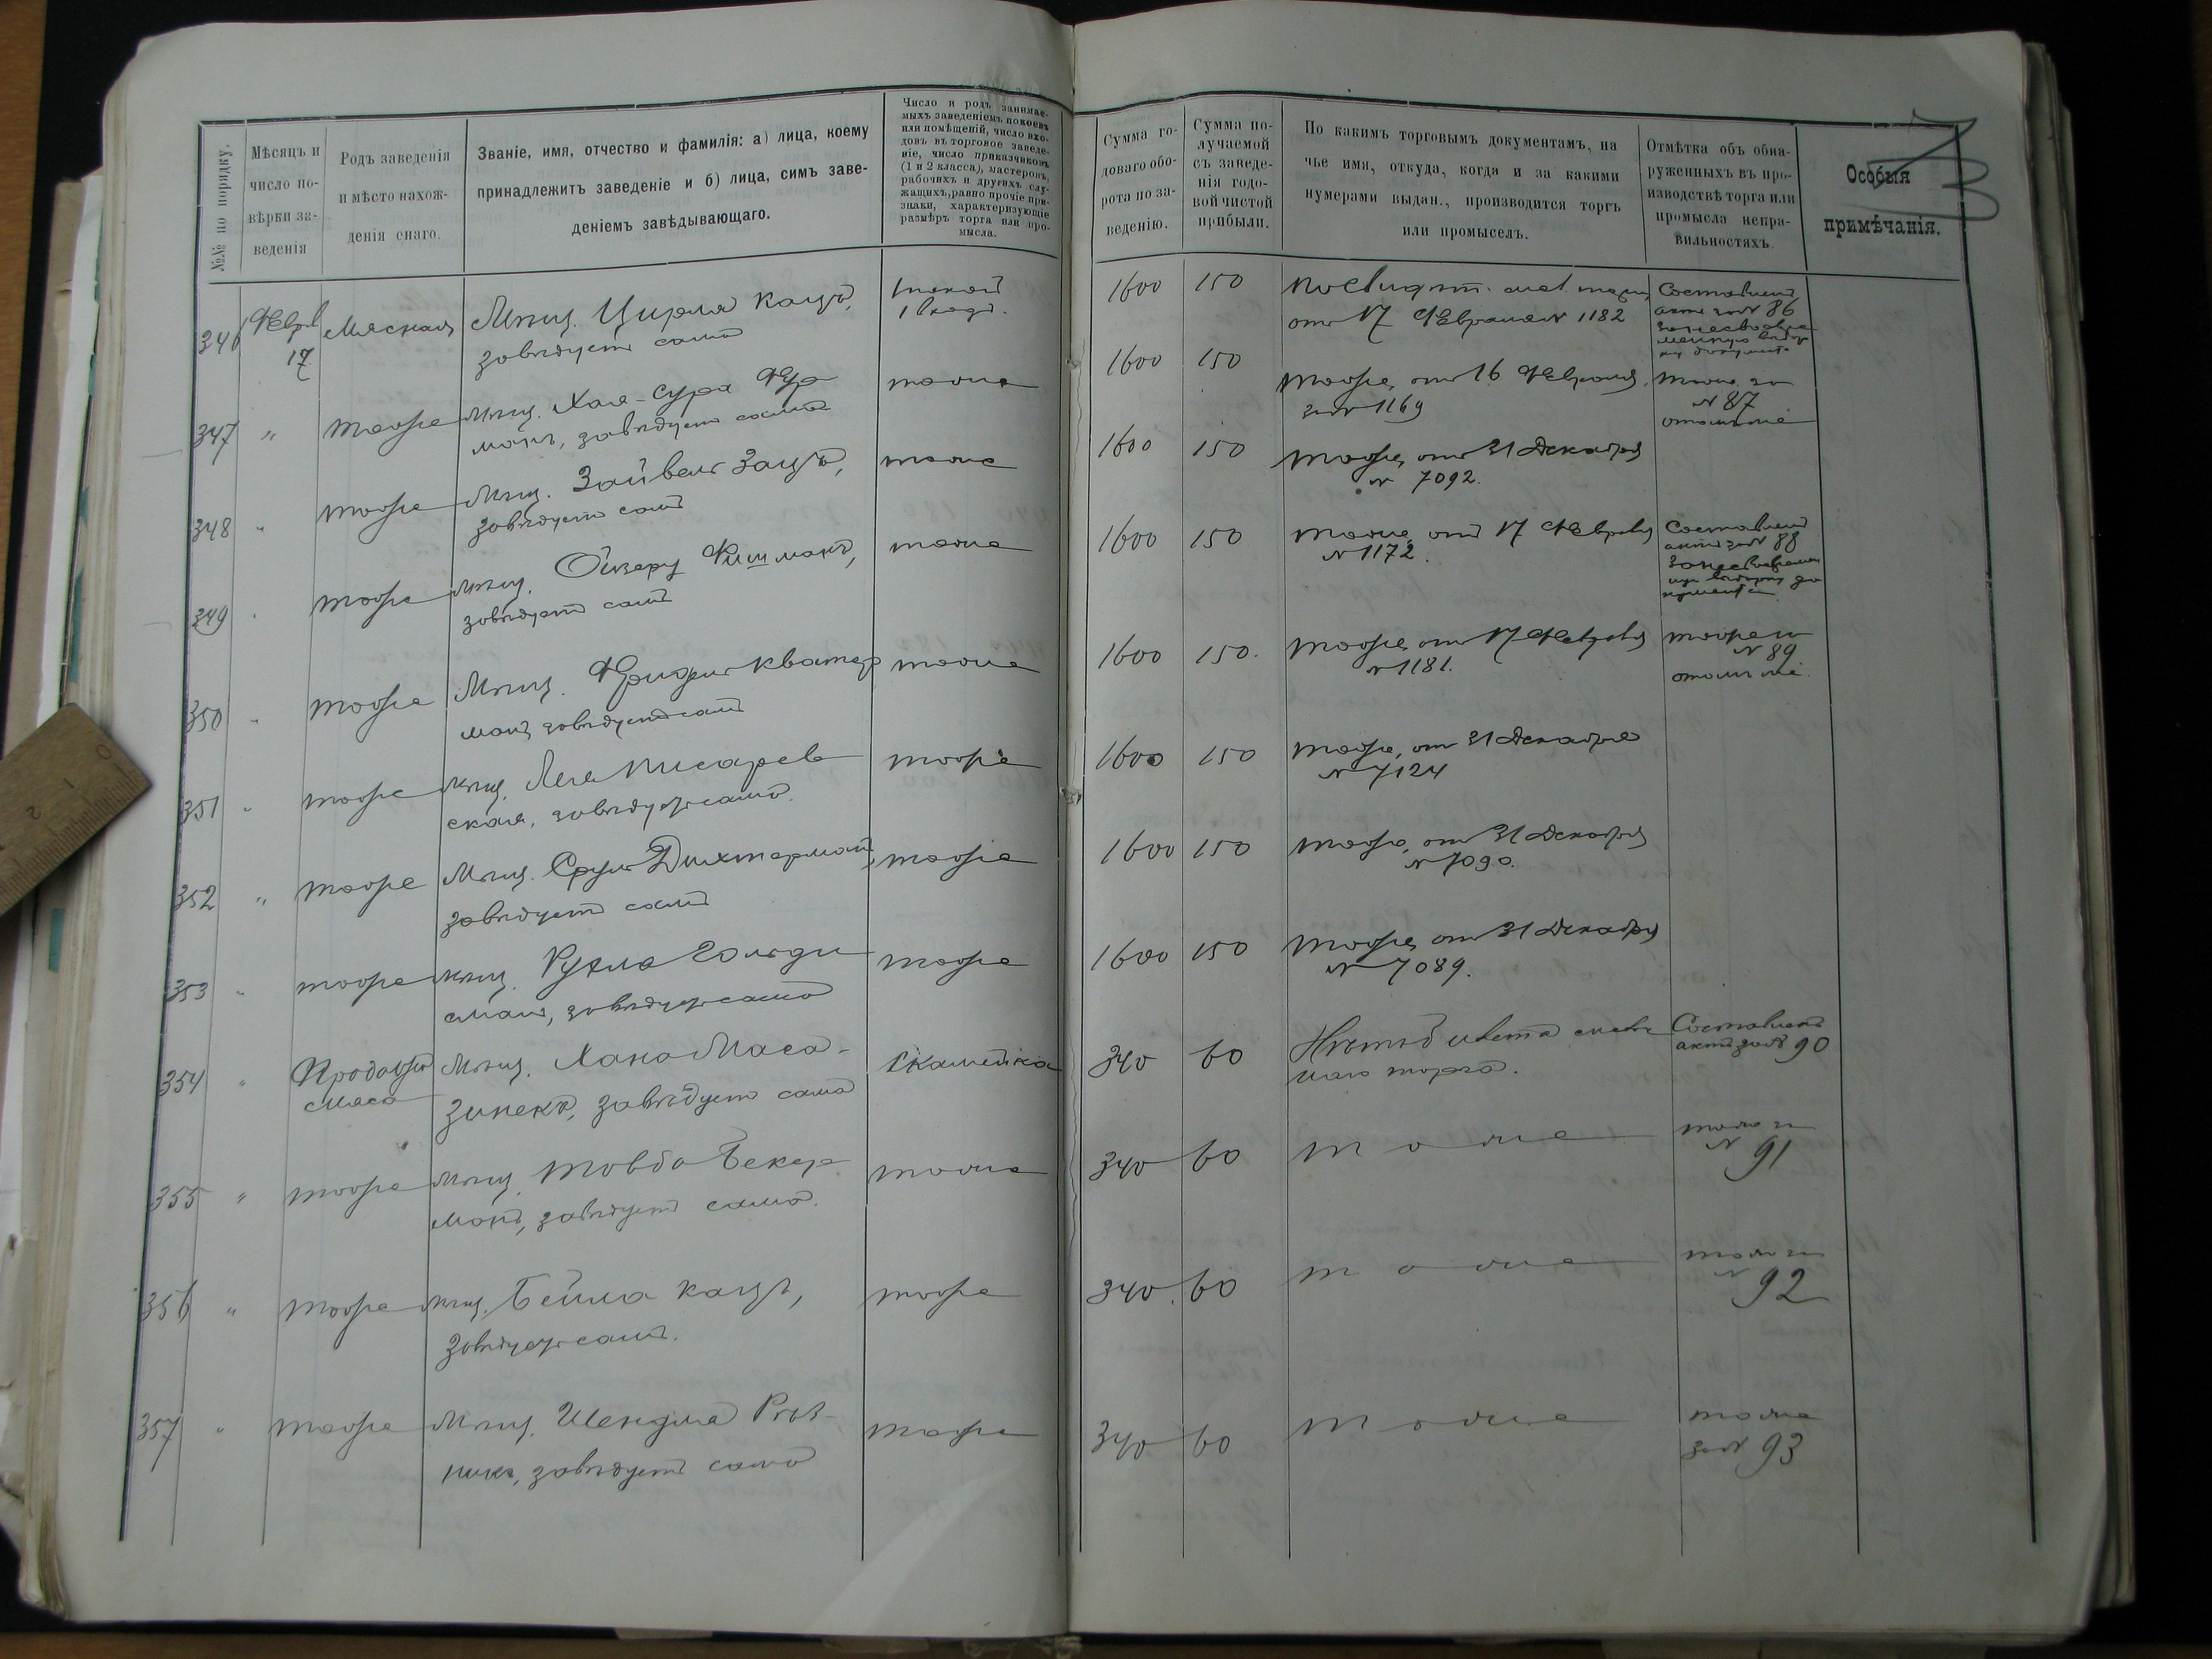 №№ по порядку.
Мѣсяцъ и число повѣрки заведенія
Родъ заведенія и мѣсто нахожденія онаго.
Званіе, имя, отчество и фамилія: а) лица, коему
принадлежитъ заведеніе и б) лица, симъ заве-
деніемъ завѣдывающаго.
Число и родъ занимае-
мыхъ заведеніемъ покоевъ
или помѣщеній, число вхо-
довъ въ торговое заведе-
ніе, число приказчиковъ
(1 и 2 класса), мастеровъ,
рабочихъ и другихъ слу-
жащихъ, равно прочіе при-
знаки, характеризующіе
размѣръ торга или про-
мысла.
Сумма го-
доваго обо-
рота по за-
веденію.
Сумма по-
лучаемой
съ заведе-
нія годо-
вой чистой
прибыли.
По какимъ торговымъ документамъ, на
чье имя, откуда, когда и за какими
нумерами выдан., производится торгъ
или промыселъ.
Отмѣтка объ обна-
руженныхъ въ про-
изводствѣ торга или
промысла непра-
вильностяхъ.
Особыя
примѣчанія.
346 Феврл 17 Мясная Мѣщ. Цирля Кацъ,
завѣдуетъ сама
1 покой
1 входъ.
1600 150
от 17 Февраля № 1182
Составленъ
актъ за № 86
347 " тоже Мѣщ. Хая-Сура Фур
манъ, завѣдуетъ сама
тоже
1600 150 тоже, от 16 Февраля,
за № 1169
тоже за
№ 87
348 " тоже Мѣщ. Зайвель Зацъ,
завѣдуетъ самъ
тоже
1600 150 тоже, от 31 Декабря
№ 7092.
349 " тоже Мѣщ. Ойзеръ Фишманъ,
завѣдуетъ самъ
тоже
1600 150 тоже, от 17 Февраля
№ 1172.
Составленъ
актъ за № 88
350 " тоже Мѣщ. Фридель Кватер
манъ завѣдуетъ самъ
тоже
1600 150. тоже, от 17 Февраля
№ 1181.
тоже за
№ 89
351 " тоже Мѣщ. Лея Писарев
ская, завѣдует сама.
тоже
1600 150 тоже, от 31 Декабря
№ 7124
352 " тоже Мѣщ. Сруль Дихтерманъ,
завѣдуетъ самъ
тоже
1600 150 тоже, от 31 Декабря
№ 7090.
353 " тоже Мѣщ. Рухля Гольди
сманъ, завѣдует сама
тоже
1600 150 тоже, от 31 Декабря
№ 7089.
354 " Продажа
мяса
Мѣщ. Хана Маса-
зинекъ, завѣдуетъ сама
скамейка
340 60
торга.
Составленъ
актъ за № 90
355 " тоже Мѣщ. Товба Бекер
манъ, завѣдуетъ сама.
тоже
340 60 тоже
тоже за
№ 91
356 " тоже Мѣщ. Бейла Кацъ,
завѣдует сама.
тоже
340. 60 тоже
тоже за
№ 92
357 " тоже Мѣщ. Шендля Рѣз-
никъ, завѣдуетъ сама
тоже
340 60 тоже
тоже
за № 93
0 1 2